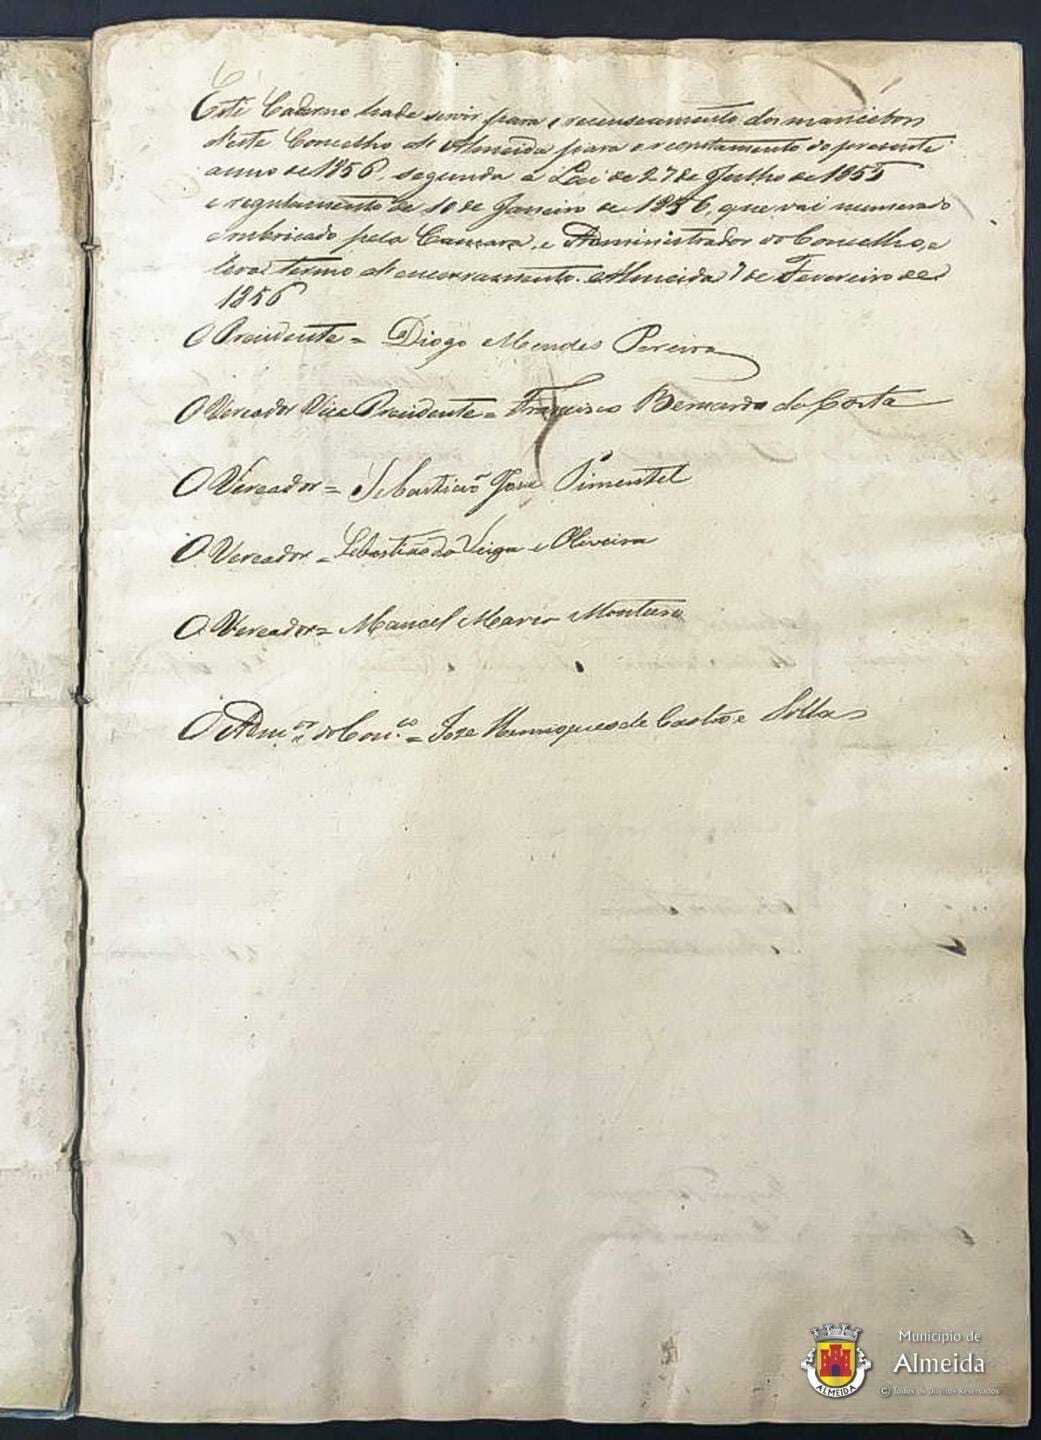 Este Caderno hade servir para o recenseamento dos mancebos
d'este Concelho d'Almeida para o recrutamento do presente
anno de 1856, segundo a Lei de 27 de Julho de 1855
e regulamento de 10 de Janeiro de 1856, que vai numerado
e rubricado pela Camara, e Administrador do Concelho, e
leva termo d'encerramento. Almeida 7 de Fevereiro de
1856
O Presidente = Diogo Mendes Pereira
O Vereador Vice Presidente = Francisco Bernardo da Costa
O Vereador = Sebastião José Pimentel
O Vereador = Sebastião da Veiga e Oliveira
O Vereador = Manoel Maria Monteiro
O Adm.or do Con.co = Jose Henriques de Castro e Solla
Município de
Almeida
ALMEIDA
© Todos os Direitos Reservados